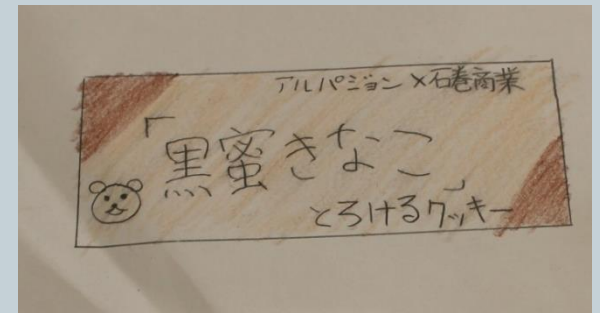 アルパジョン×石巻商業
「黒蜜きなこ」
とろけるクッキー